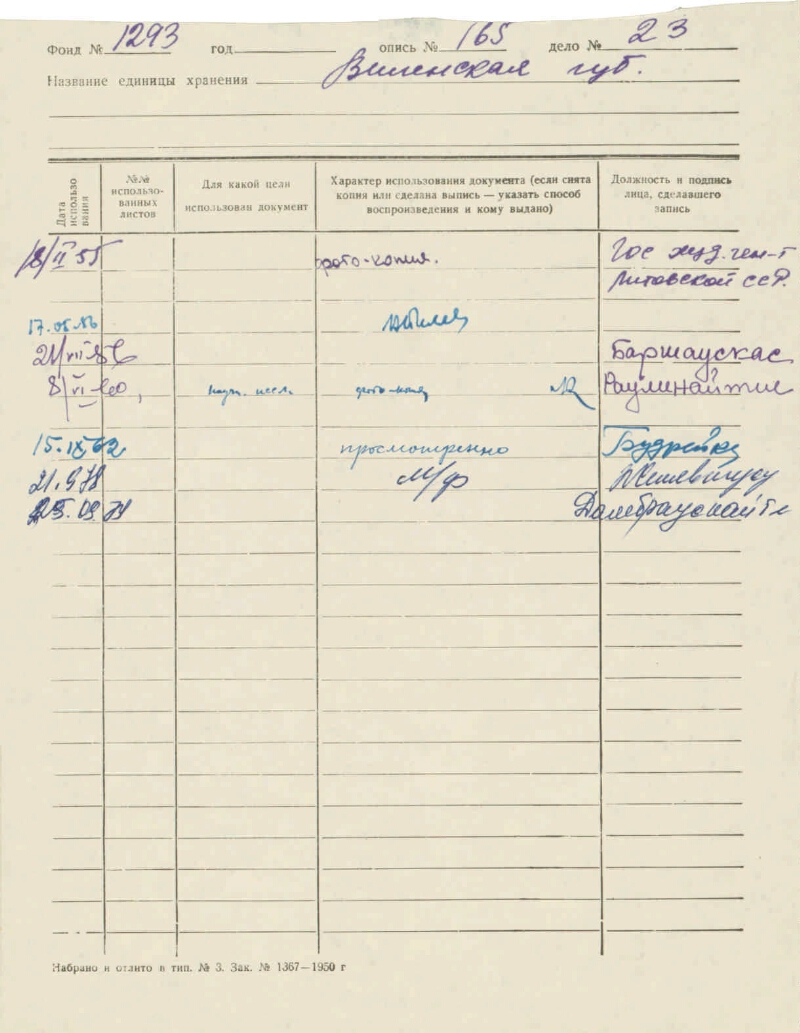 Фонд № 1293 год опись № 165 дело № 23
Название единицы хранения Виленская губ.
Дата использования
№№ использо-
ванных
листов
Для какой цели
использован документ
Характер использования документа (если снята
копия или сделана выпись — указать способ
воспроизведения и кому выдано)
Должность и подпись
лица, сделавшего
запись
18/II 55 фото-копия. Гос
Литовской ССР.
17.
21/VII Баршаускас
8/VI-60, фото- Раулинайтис
15.IX 62 просмотренно
21.9.78 М/ф
25.09.79 Домбраускайте
Набрано и отлито в тип. № 3. Зак. № 1367—1950 г